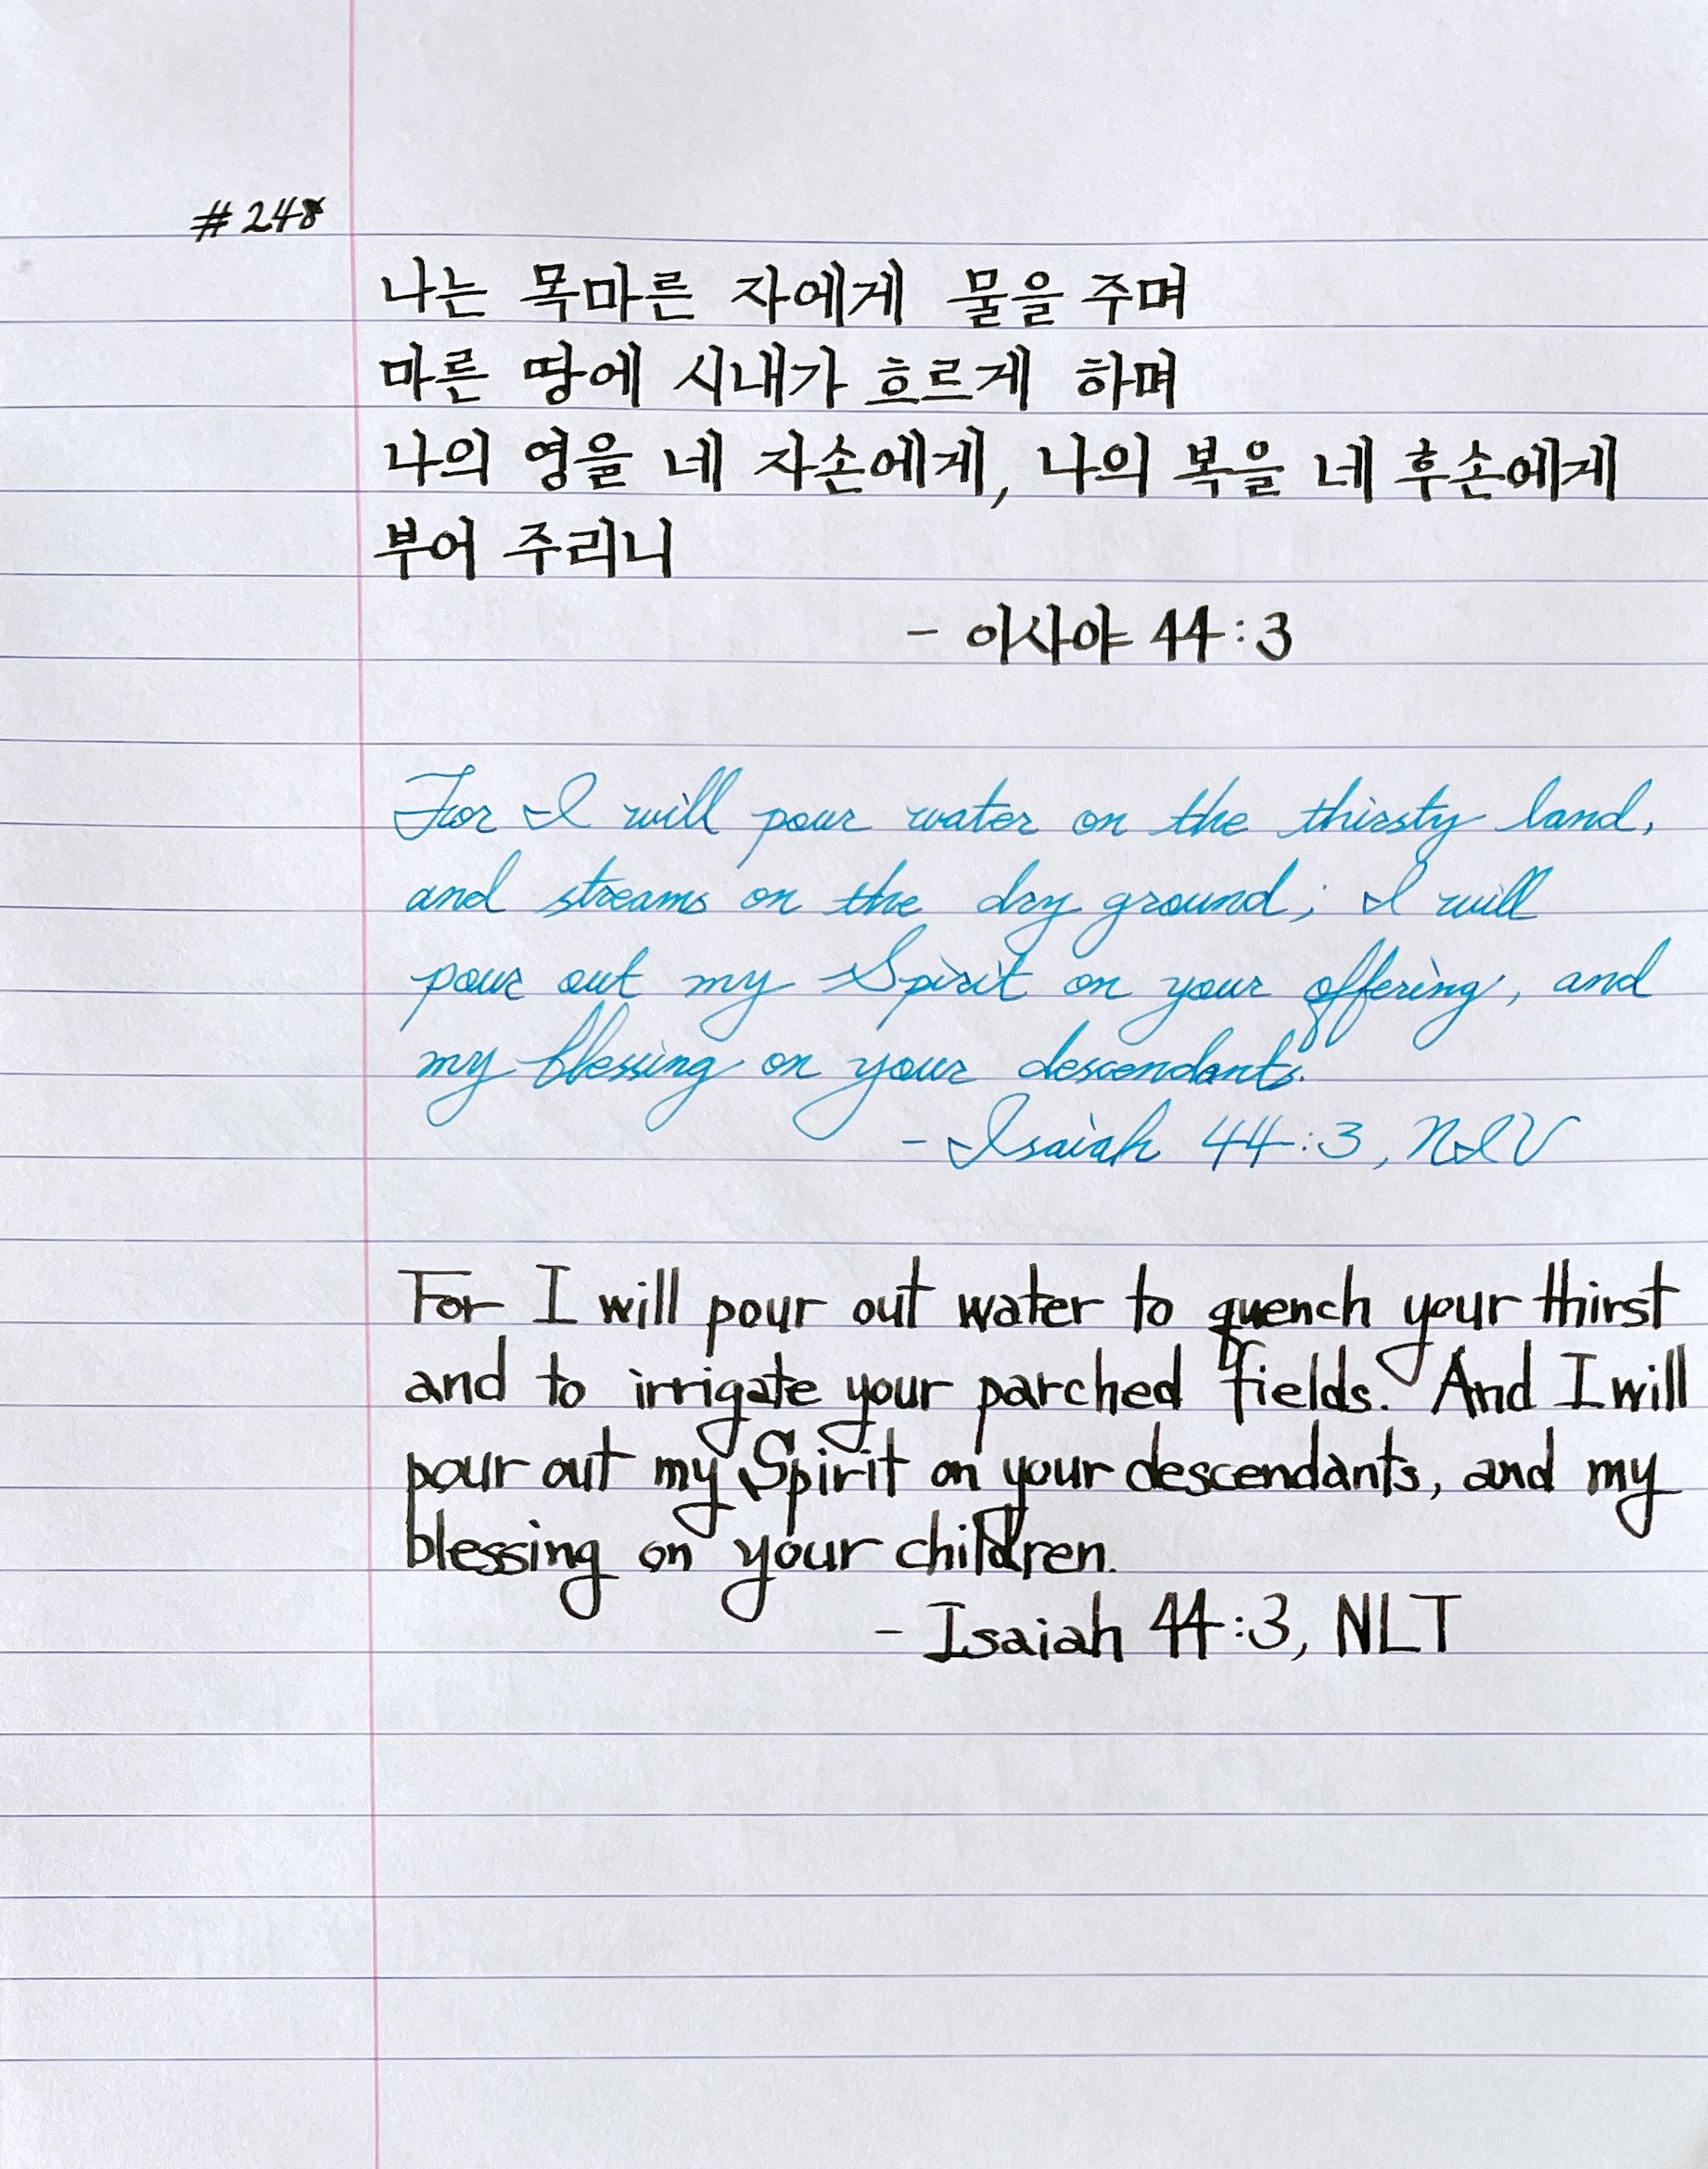 #248
나는 목마른 자에게 물을 주며
마른 땅에 시내가 흐르게 하며
나의 영을 네 자손에게, 나의 복을 네 후손에게
부어 주리니
- 이사야 44:3
For I will pour water on the thirsty land,
and streams on the dry ground; I will
pour out my Spirit on your offering, and
my blessing on your descendants.
- Isaiah 44:3, NIV
For I will pour out water to quench your thirst
and to irrigate your parched fields. And I will
pour out my Spirit on your descendants, and my
blessing on your children.
- Isaiah 44:3, NLT